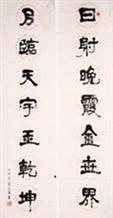 日射晚霞金世界
月臨天宇玉乾坤